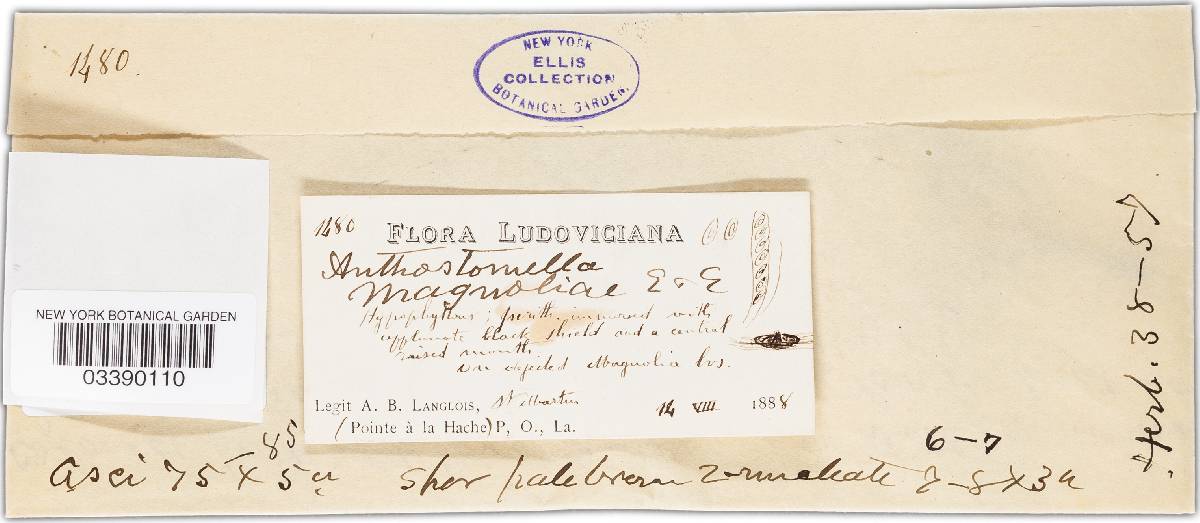 1480.
NEW YORK
ELLIS
COLLECTION
BOTANICAL GARDEN.
NEW YORK BOTANICAL GARDEN
03390110
1480 FLORA LUDOVICIANA
Anthostomella
Magnoliae E & E
Hypophyllous; perith. immersed with
applanate black shield and a central
raised mouth
on dejected Magnolia lvs.
LEGIT A. B. LANGLOIS, St Martin 14 VIII 1888
(Pointe à la Hache) P, O., La.
Herb. 38-57
85
6-7
asci 75 x 5 u spor pale brown 2-nucleate 7-8 x 3 u